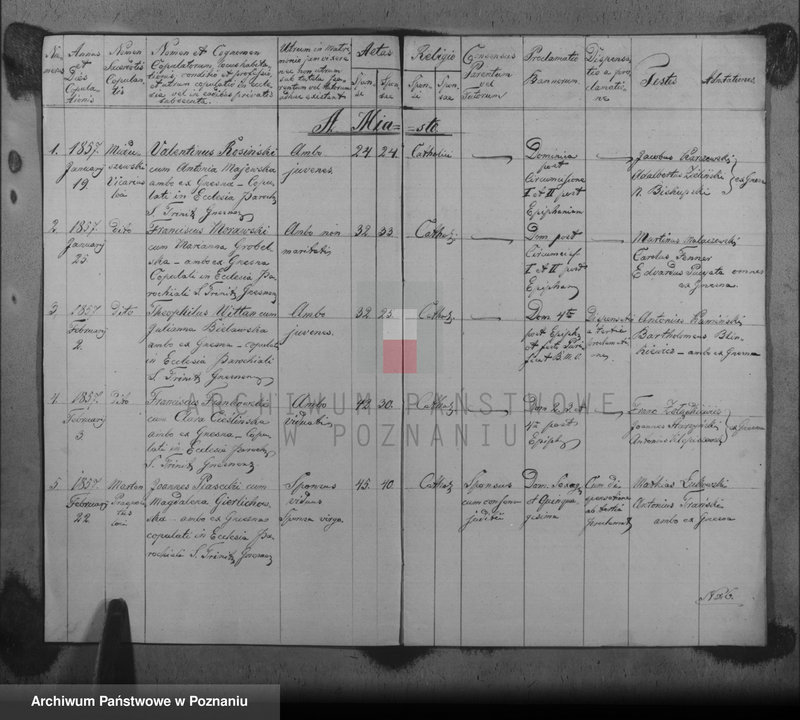 Nu-
merus
Annus
et
Dies
Copula-
tionis
Nomen
Sacerdotis
Copulan-
tis
Nomen et Cognomen
Copulatorum, locus habita-
tionis, conditio et professio,
et utrum copulatio in eccle-
sia vel in aedibus privatis
Utrum in matri-
monio jam vixere
nec non utrum
sub tutela
Aetas
Spon-
si
Spon-
sae
Religio
Spon-
si
Spon-
sae
Consensus
Parentum
vel
Tutorum
Proclamatio
Bannorum
Dispensa-
tio a pro-
clamatio-
ne
Testes
Adnotationes
A. Mia= =sto
1.
1857.
January
19
Vicarius
Valentinus Rosiński
cum Antonia Majewska
ambo ex Gnesna - Copu-
lati in Ecclesia Paroch.
S. Trinit. Gnesnen
Ambo
juvenes.
24
24
Catholici
Dominica
post
Circumcisione
I et II post
Epiphaniam
Jacobus Karczewski
Adalbertus Zieliński
N. Biskupski
ex Gnesna
2
1857.
January
25.
dito
Franciscus Morawski
cum Marianna Grobel-
ska - ambo ex Gnesna
Copulati in Ecclesia Pa-
rochiali S. Trinit. Gnesnen
Ambo non
maritati
32
33
Cathol.
Dom. post
Circumcis.
I et II post
Epiphan
Martinus
Carolus Fenner
Edvardus omnes
ex Gnesna.
3
1857
February
2.
Dito
Theophilus Wittan cum
Julianna Bielawska
ambo ex Gnesna - copulati
in Ecclesia Parochiali
S. Trinit. Gnesnen
Ambo
juvenes.
32.
25.
Cathol.
Dom 4ta
post Epiph.
et festo Puri-
ficat B.M.V.
Dispensatio
a tertia
proclamati
one,
Antonius Kamiński
Bartholomeus Blin-
kiewicz - ambo ex Gnesna
4
1857.
February
3.
dito
Franciscus
cum Clara Cieślińska
ambo ex Gnesna - Copu-
lati in Ecclesia Paroch.
S. Trinit. Gnesnen
Ambo
viduati
43
30.
Cathol.
Dom 2. 3 et
4ta post
Epiph.
Joannes
Antonius
ex Gnesna
5.
1857
February
22
Marton
Joannes Piasecki cum
Magdalena Gierlichow-
ska - ambo ex Gnesna
copulati in Ecclesia Pa-
rochiali S. Trinit. Gnesnen
Sponsus
viduus
Sponsa virgo.
45.
40.
Cathol.
Sponsus
cum consensu
judicii
Dom. Sexag.
et Quinqua-
gesima
Cum di-
spensatione
ab tertia
proclamat
Mathias Lutowski
Antonius
ambo ex Gnesna
ARCHIWUM PAŃSTWOWE
W POZNANIU
Archiwum Państwowe w Poznaniu